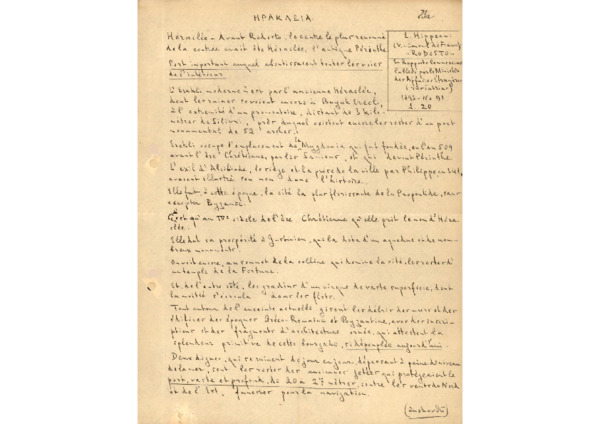 ΗΡΑΚΛΕΙΑ
Héraclée - Avant Rodosto, le centre le plus renommé
de la contrée avait été Héraclée, l'antique Périnthe.
Port important auquel aboutissaient toutes les voies
de l'intérieur.
L'Erekli moderne n'est pas l'ancienne Héraclée,
dont les ruines se voient encore à Buyuk Erekli,
à l'extrémité d'un promontoire, distant de kilo-
mètres de Silivri, près duquel existent encore les restes d'un pont
monumental de 32 arches.
Erekli occupe l'emplacement de la qui fut fondée, en l'an 509
avant l'ère Chrétienne, par les Samiens, et qui devint Périnthe
L'exil d'Alcibiade, le siège et la prise de la ville par Philippe en 341,
avaient illustré son nom dans l'histoire.
Elle fut, à cette époque, la cité la plus florissante de la Propontide, sans
excepter Byzance.
C'est qu'au IVe siècle de l'ère Chrétienne qu'elle prit le nom d'Héra-
clée.
Elle dut sa prospérité à Justinien, qui la dota d'un aqueduc et de nom-
breux monuments.
On voit encore, au sommet de la colline qui domine la cité, les restes d'
un temple de la Fortune.
Et, de l'autre côté, les gradins d'un cirque de vaste superficie, dont
la moitié s'écroula dans les flots.
Tout autour de l'enceinte actuelle gisent les débris des murs et des
édifices des époques Gréco-Romaine et Byzantine, avec des inscrip-
tions et des fragments d'architecture ornés, qui attestent la
splendeur primitive de cette bourgade, si dépeuplée aujourd'hui.
Deux digues, qui se minent de jour en jour, dépassant à peine le niveau
de la mer, sont les restes des anciennes jetées qui protégeaient le
port, vaste et profond, de 20 à 27 mètres, contre les vents du Nord
et de l'Est, funestes pour la navigation.
L. Hippeau
- RODOSTO -
In Rapports Commerciaux
Publiés par le Ministère
des Affaires Étrangères
P. 20